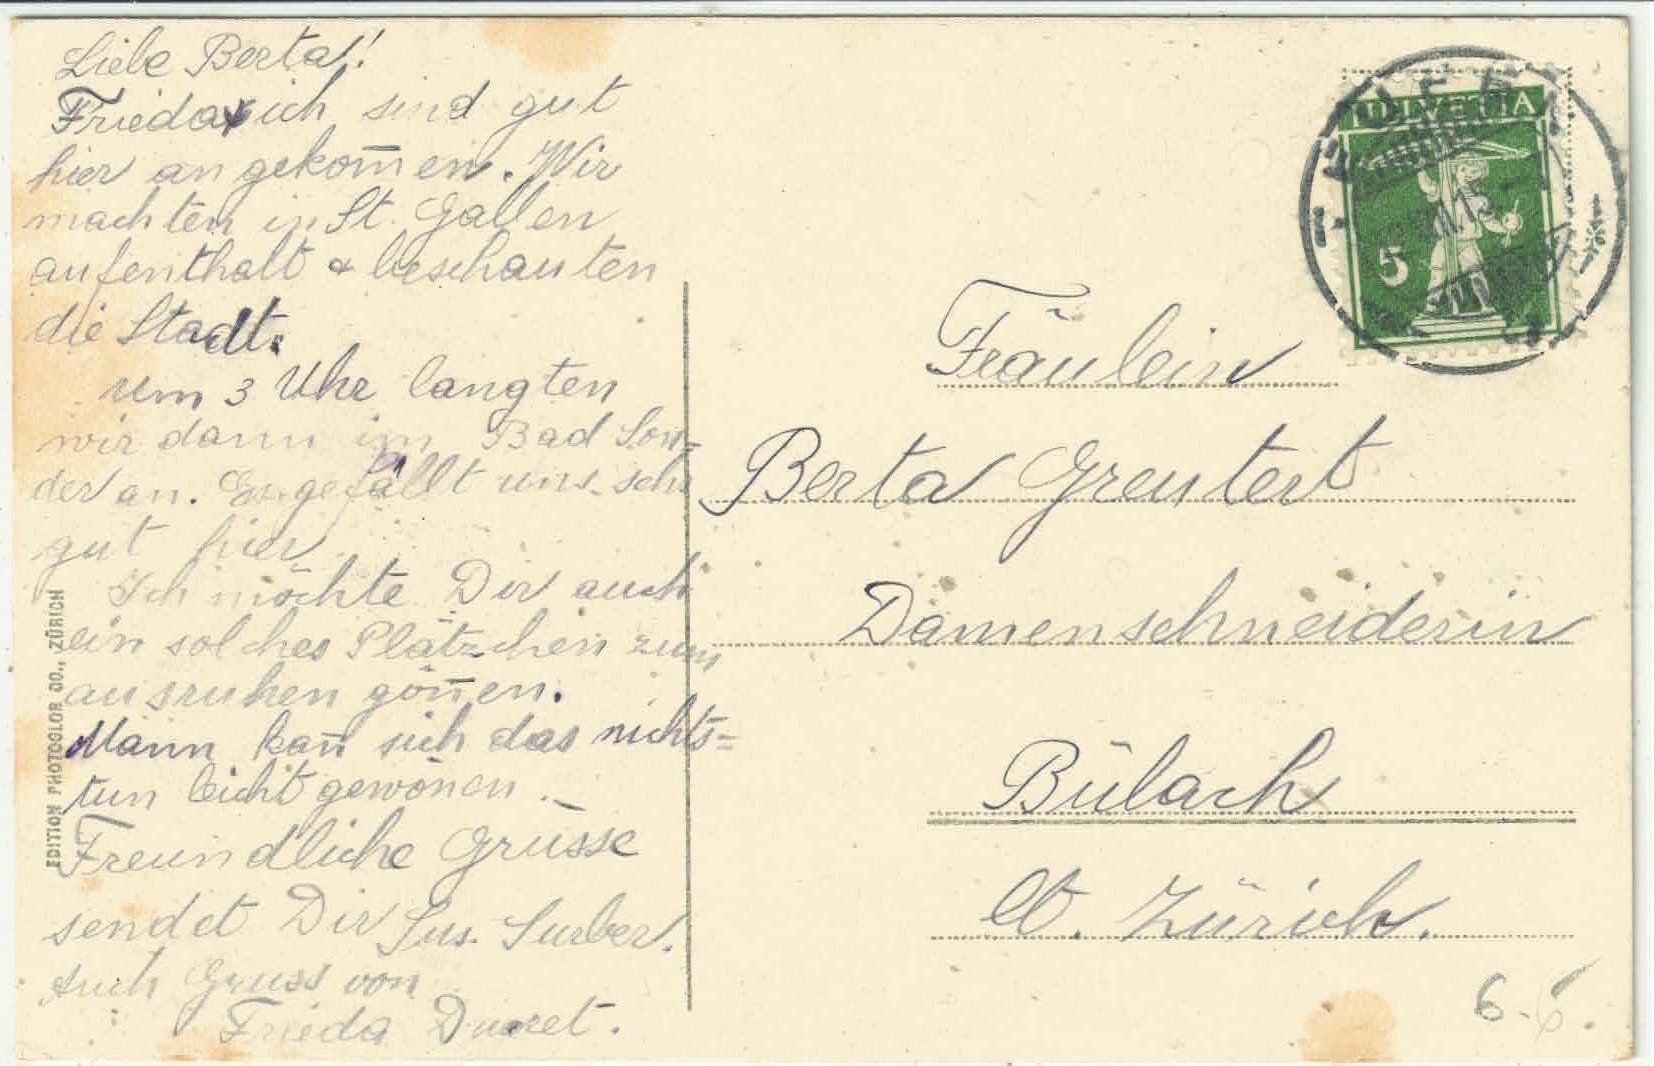 Liebe Berta!
Frieda & ich sind gut
hier angekom̅en. Wir
machten in St. Gallen
aufenthalt & beschauten
die Stadt.
Um 3 Uhr langten
wir dann im Bad Son=
der an. Es gefällt uns sehr
gut hier.
Ich möchte Dir auch
ein solches Plätzchen zum
ausruhen gön̅en.
Mann kan̅ sich das nichts=
tun leicht gewön̅en.
Freundliche Grüsse
sendet Dir Sus. Surber.
Auch Gruss von
Frieda
EDITION PHOTOGLOB CO., ZÜRICH
HELVETIA
5
Fräulein
Berta Greutert
Damenschneiderin
Bülach
Ct. Zürich.
6.